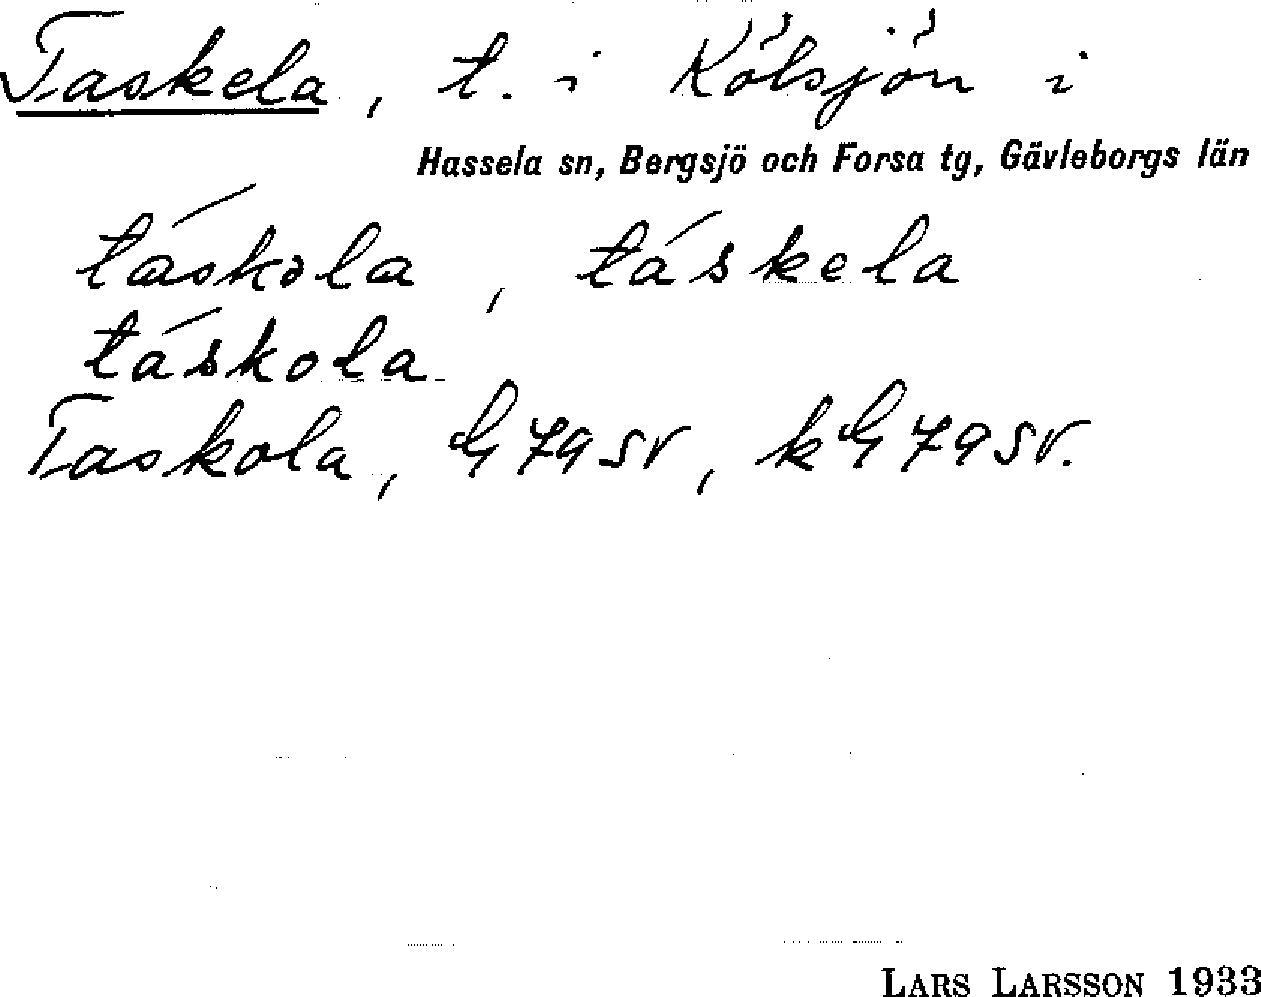 Taskela, t. i Kölsjön i
Hassela sn, Bergsjö och Forsa tg, Gävleborgs län
táskola, táskela
táskola
Taskola, G 79 SV, kG 79 SV.
LARS LARSSON 1933